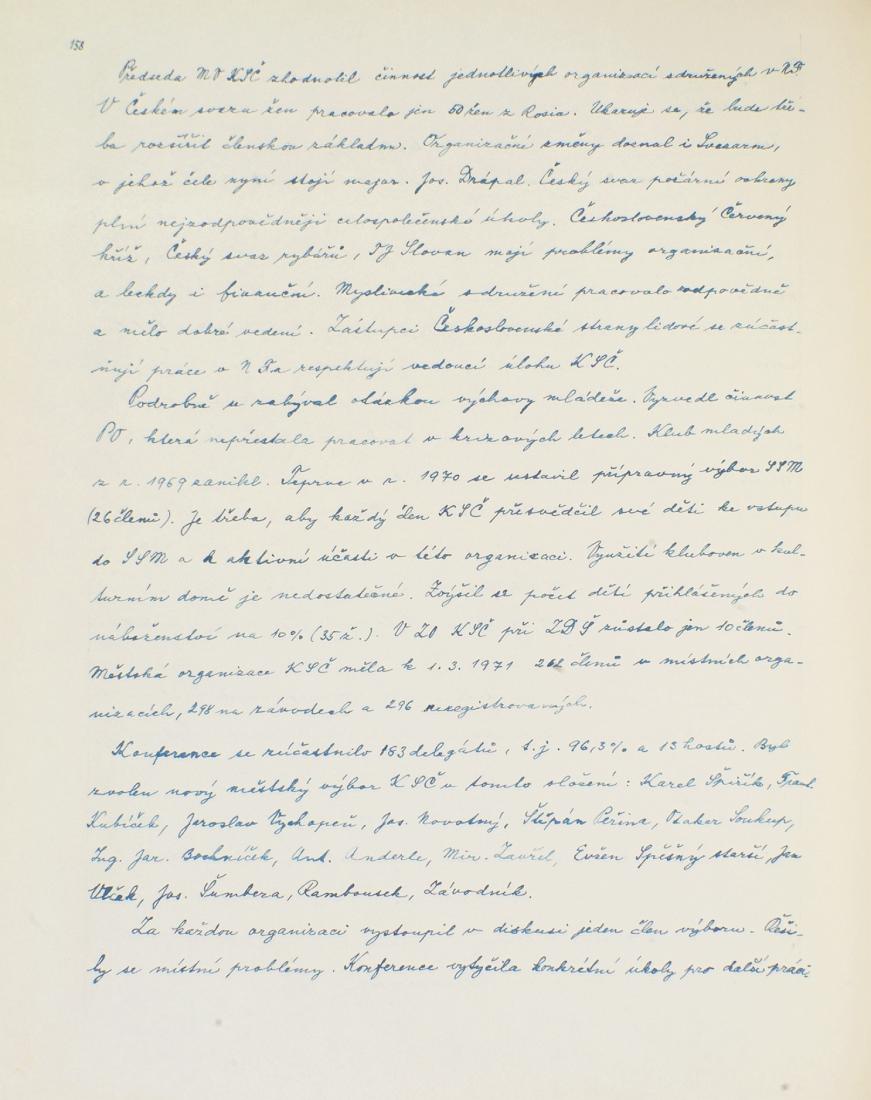 158
Předseda MV KSČ zhodnotil činnost jednotlivých organizací sdružených v NF
V Českém svazu žen pracovalo jen 50 žen z Rosia. Ukazuje se, že bude tře-
ba rozšířit členskou základnu. Organizační změny doznal i Svazarm,
v jehož čele nyní stojí major. Jos. Drápal. Český svaz požární ochrany
plní nejzodpovědněji celospolečenské úkoly. Československý Červený
kříž, Český svaz rybářů, TJ Slovan mají problémy organizační,
a leckdy i finanční. Myslivecké sdružení pracovalo zodpovědně
a mělo dobré vedení. Zástupci Československé strany lidové se zúčast-
ňují práce v NF a respektují vedoucí úlohu KSČ.
Podrobně se zabýval otázkou výchovy mládeže. Vyzvedl činnost
PO, která nepřestala pracovat v krizových letech. Klub mladých
z r. 1969 zanikl. Teprve v r. 1970 se ustavil přípravný výbor SSM
(26 členů). Je třeba, aby každý člen KSČ přesvědčil své děti ke vstupu
do SSM a k aktivní účasti v této organizaci. Využití kluboven v kul-
turním domě je nedostatečné. Zvýšil se počet dětí přihlášených do
náboženství na 10% (35 ž.). V ZO KSČ při ZDŠ zůstalo jen 10 členů.
Městská organizace KSČ měla k 1. 3. 1971 členů v místních orga-
nizacích, 298 na závodech a 296 neregistrovaných.
Konference se zúčastnilo 183 delegátů, t. j. 96,3% a 13 hostů. Byl
zvolen nový městský výbor KSČ v tomto složení: Karel Špiřík, Frant.
Kubíček, Jaroslav Vychopeň, Jos. Novotný, Štěpán Peřina, Otaker Soukup,
Ing. Jar. Bochníček, Ant. Anderle, Mir. Zavřel, Evžen Spěšný starší, Jan
Vlček, Jos. Šumbera, Rambousek, Závodník.
Za každou organizaci vystoupil v diskusi jeden člen výboru. Řeši-
ly se místní problémy. Konference vytyčila konkrétní úkoly pro další práci.